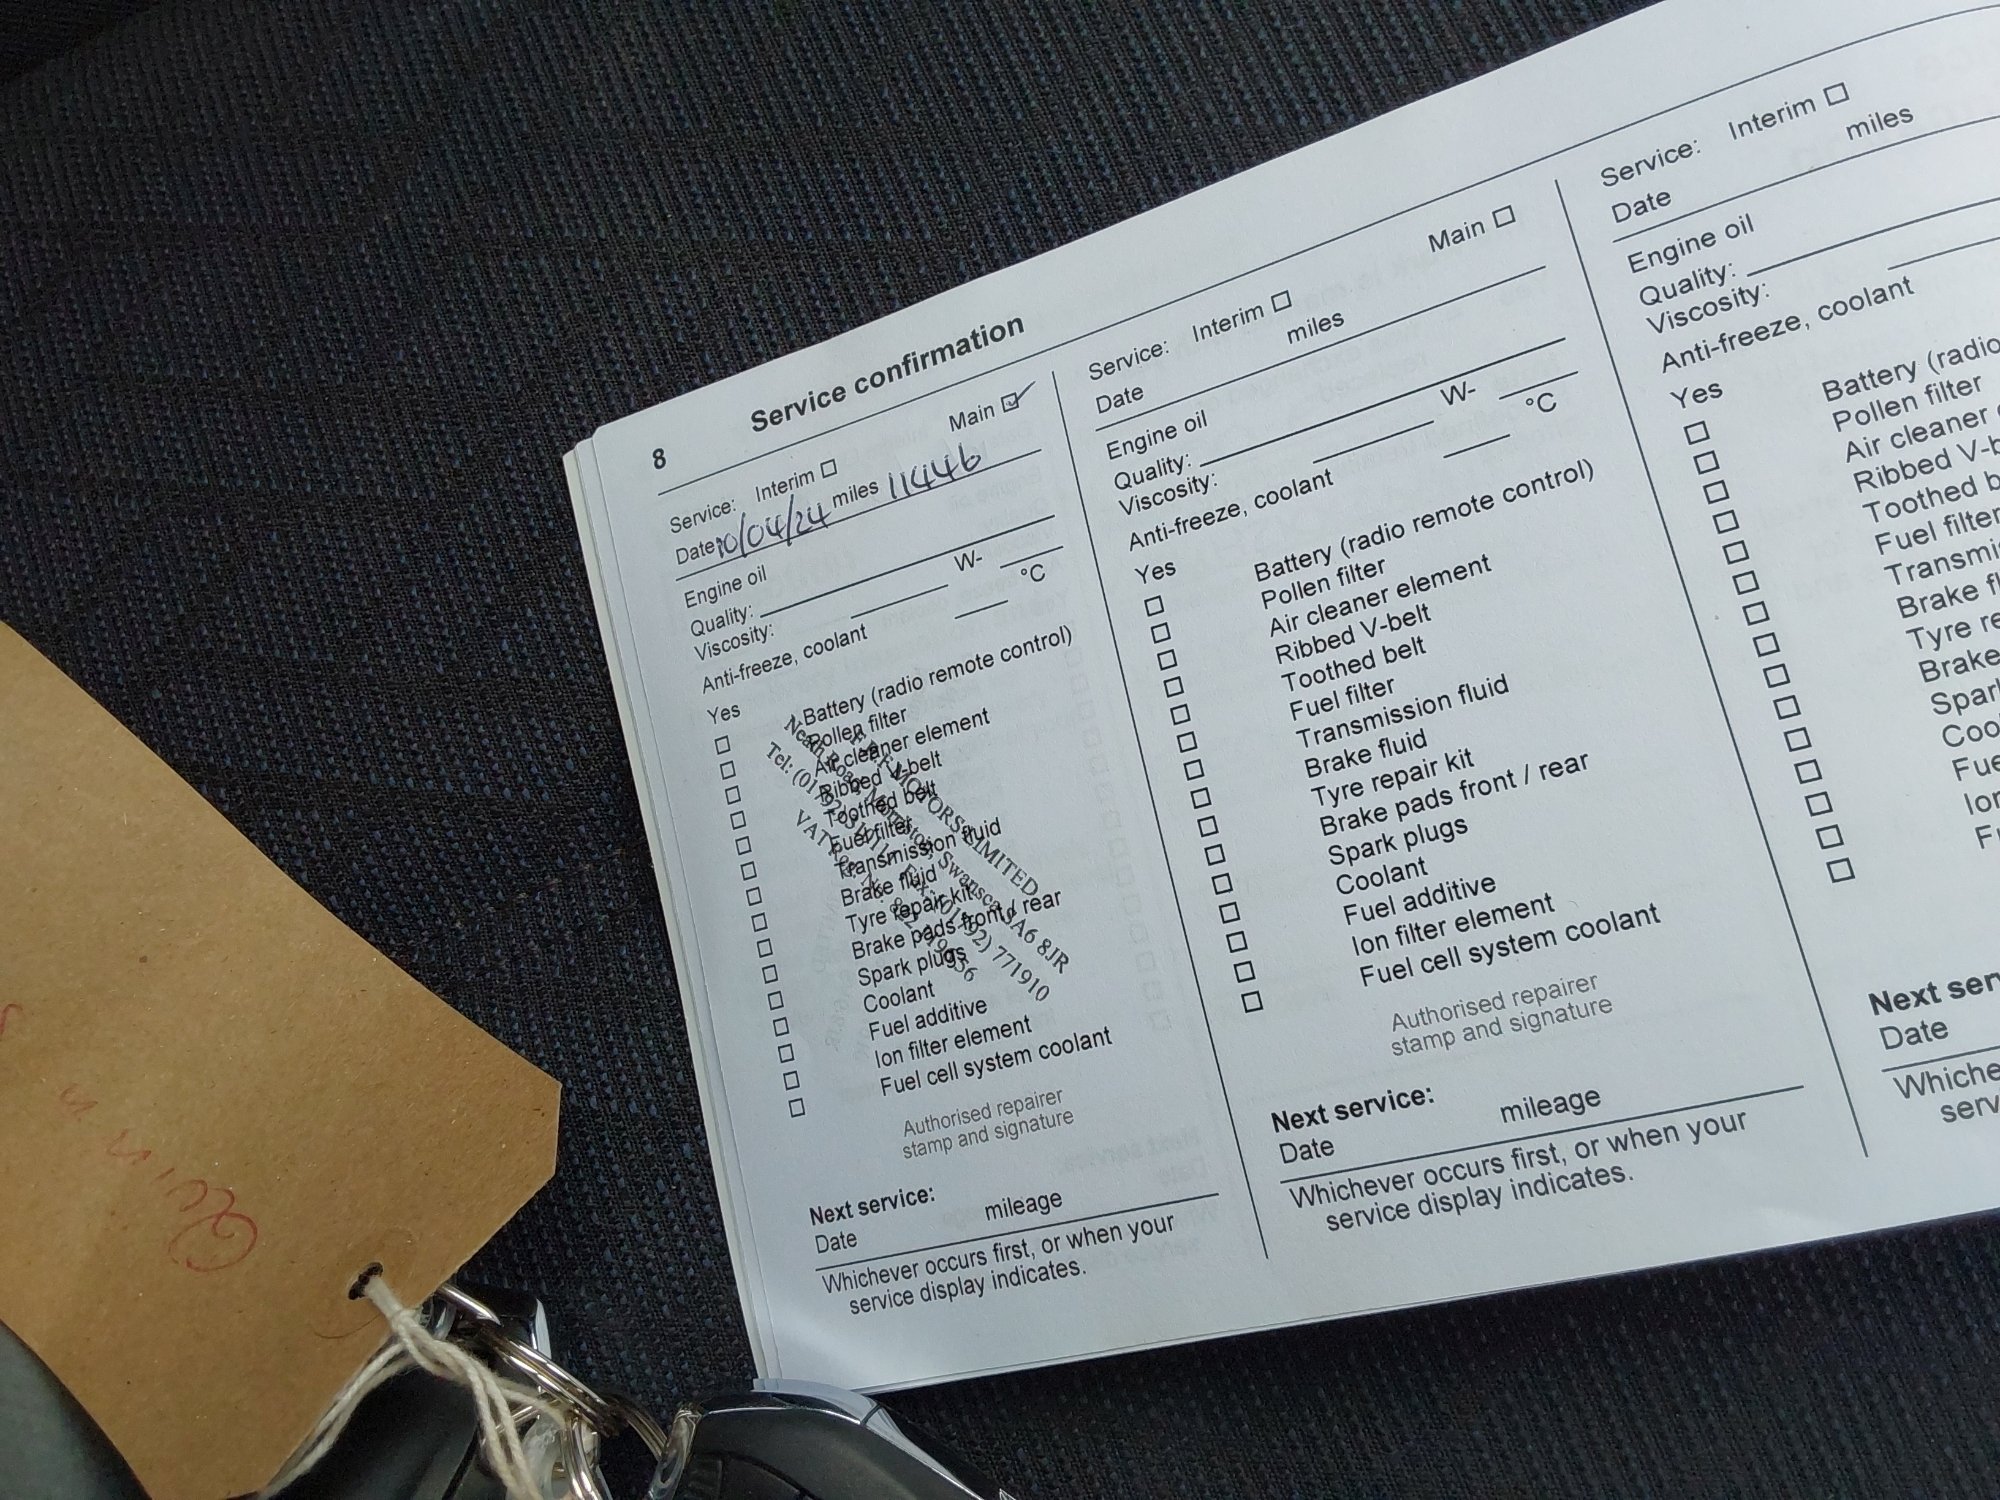 8 Service confirmation
Service: Interim Main
Date 10/04/24 miles 11446
Engine oil
Quality:
Viscosity: W-
Anti-freeze, coolant °C
Yes
Battery (radio remote control)
Pollen filter
Air cleaner element
Ribbed V-belt
Toothed belt
Fuel filter
Transmission fluid
Brake fluid
Tyre repair kit
Brake pads front / rear
Spark plugs
Coolant
Fuel additive
Ion filter element
Fuel cell system coolant
MOTORS LIMITED
Neath Road, Morriston, Swansea SA6 8JR
Tel: 771910
VAT Reg
Authorised repairer
stamp and signature
Next service:
Date mileage
Whichever occurs first, or when your
service display indicates.
Service: Interim Main
Date miles
Engine oil
Quality:
Viscosity: W-
Anti-freeze, coolant °C
Yes
Battery (radio remote control)
Pollen filter
Air cleaner element
Ribbed V-belt
Toothed belt
Fuel filter
Transmission fluid
Brake fluid
Tyre repair kit
Brake pads front / rear
Spark plugs
Coolant
Fuel additive
Ion filter element
Fuel cell system coolant
Authorised repairer
stamp and signature
Next service:
Date mileage
Whichever occurs first, or when your
service display indicates.
Service: Interim
Date miles
Engine oil
Quality:
Viscosity:
Anti-freeze, coolant
Yes
Battery (radio
Pollen filter
Air cleaner
Ribbed V-b
Toothed b
Fuel filter
Transmis
Brake fl
Tyre re
Brake
Spark
Coo
Fue
Ion
Next ser
Date
Whiche
serv